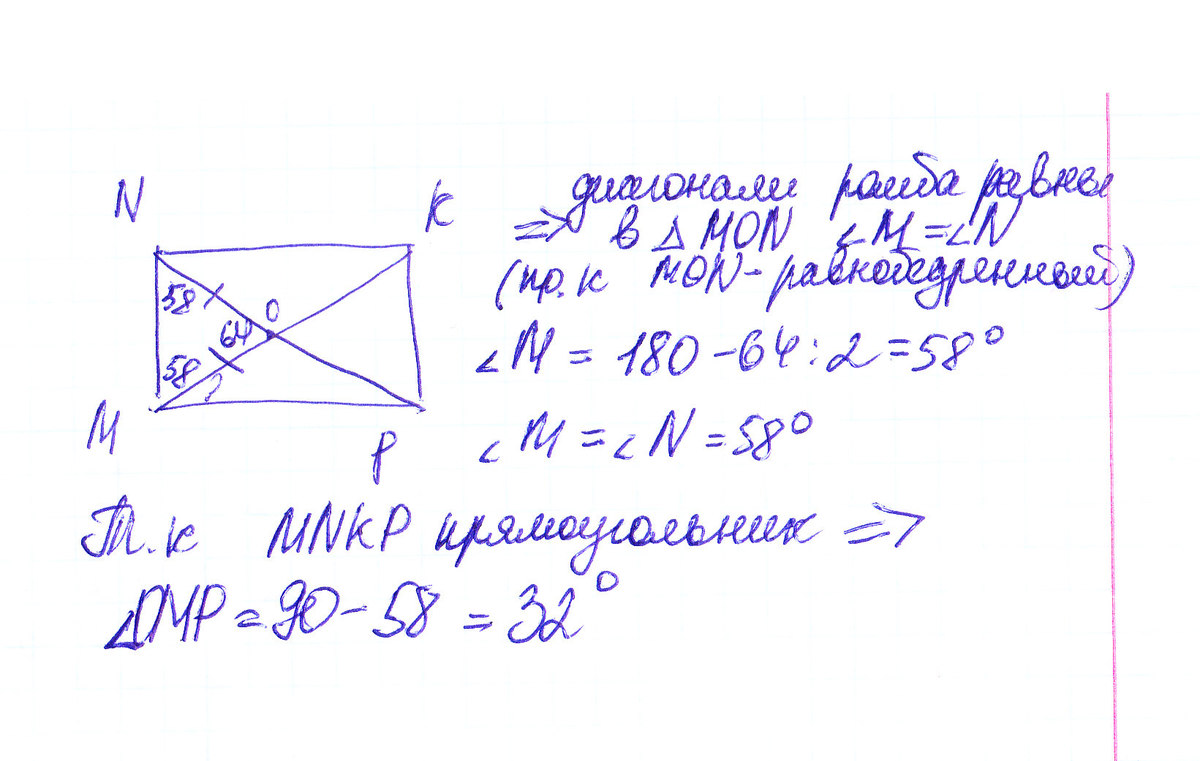 N
K
58
O
64
58
?
M
P
диагонали ромба равны
=> в △ MON ∠M=∠N
(пр.к MON-равнобедренный)
∠M = 180-64:2=58°
∠M = ∠N =58°
Т.к MNKP прямоугольник =>
∠OMP = 90-58 = 32°